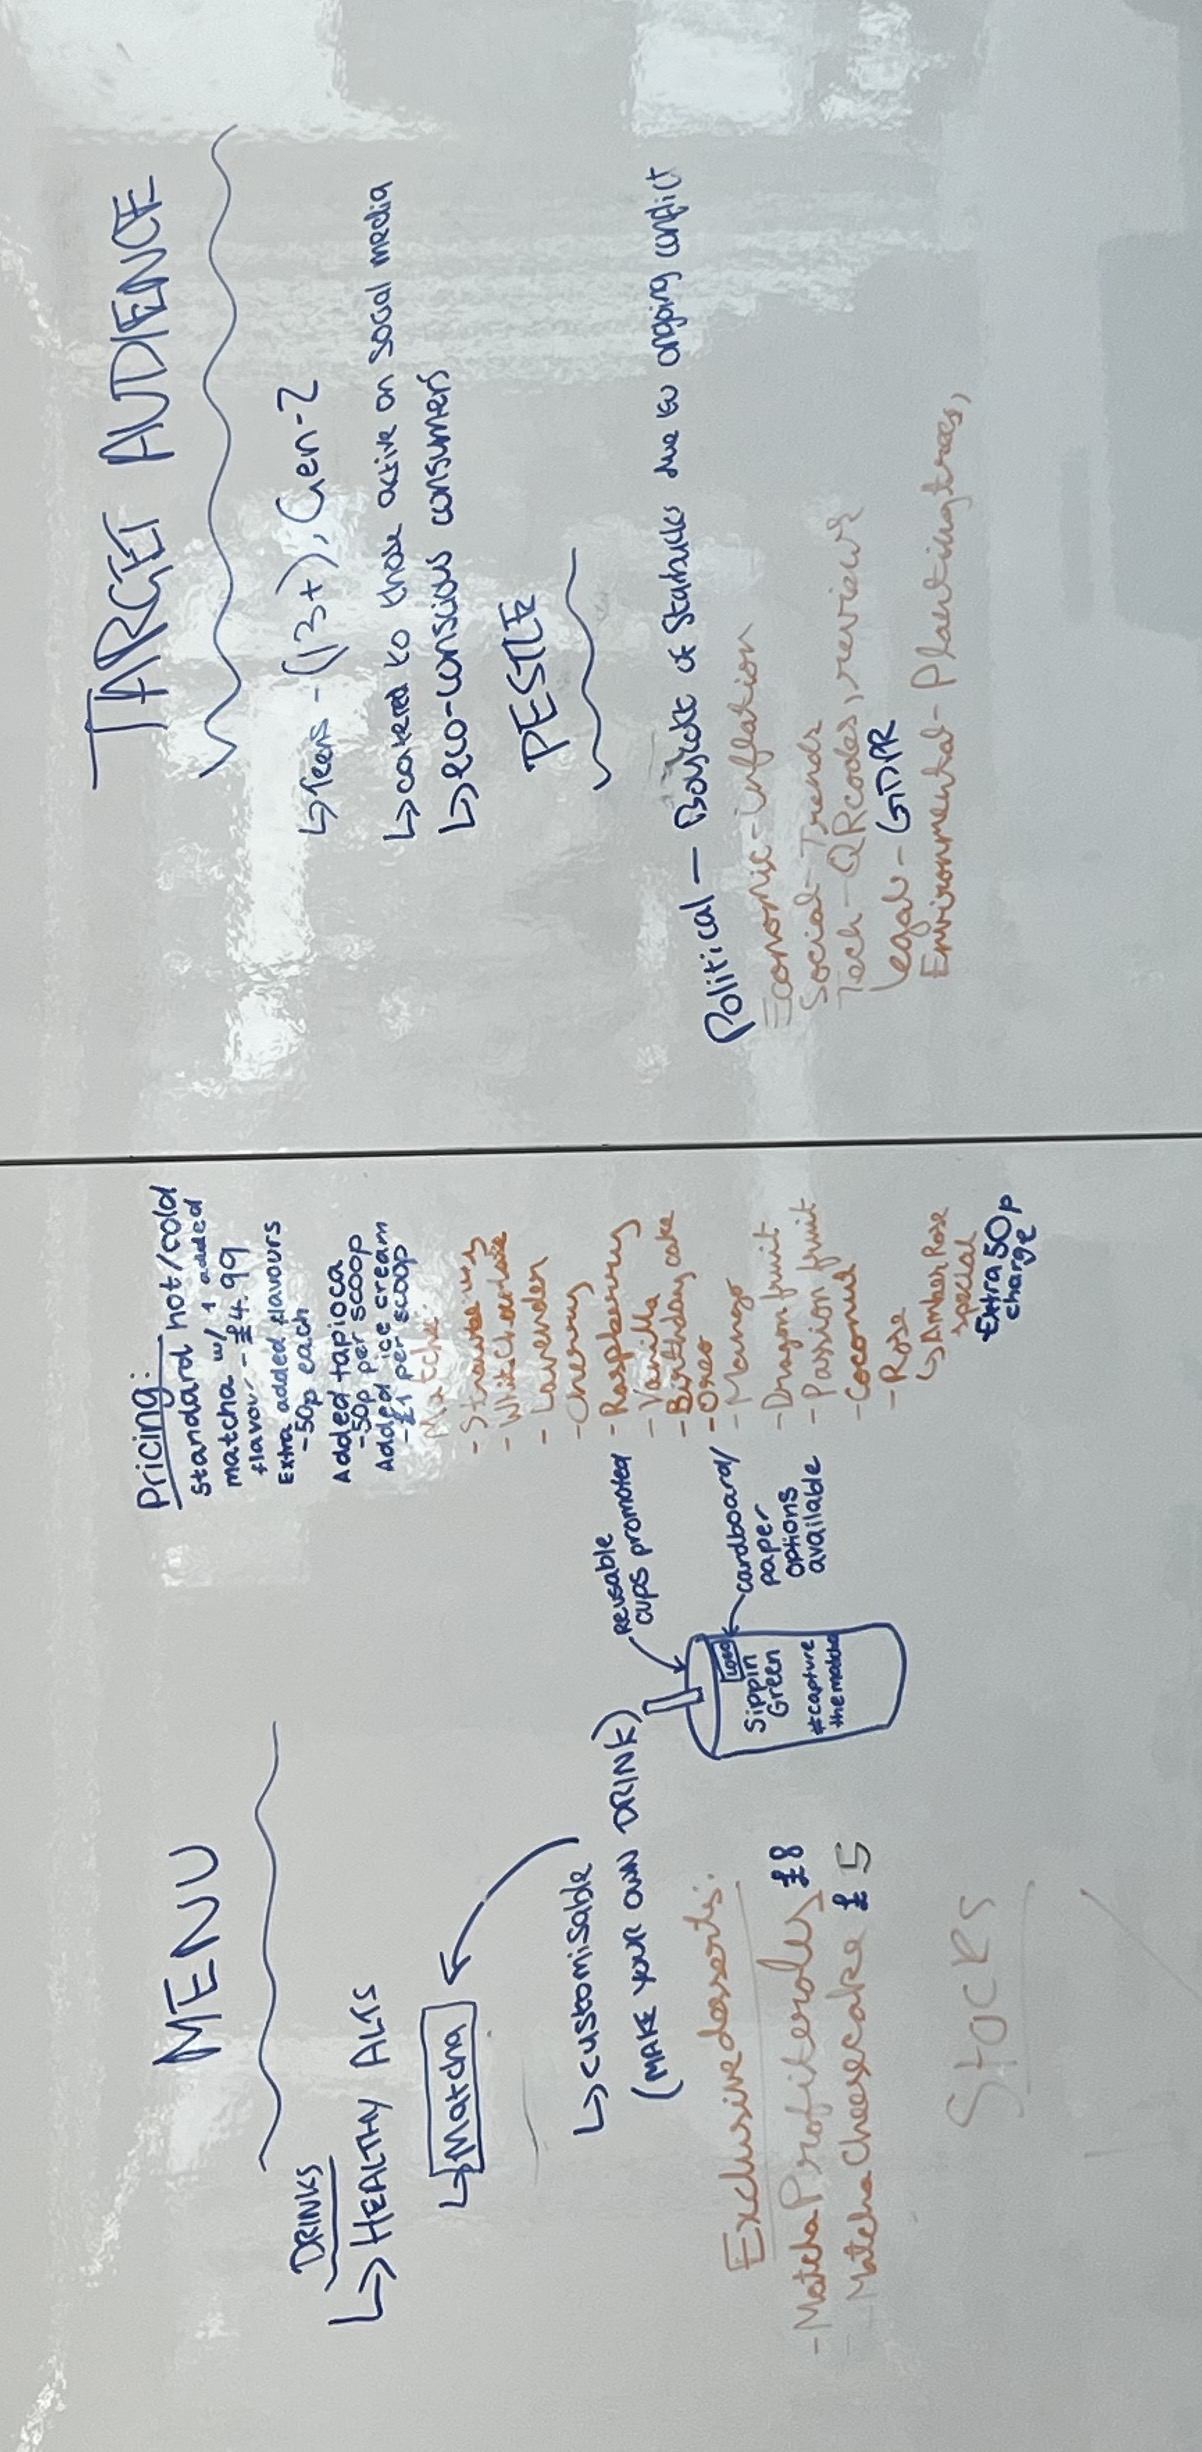 MENU
DRINKS
↳ HEALTHY ALTS
↳ Matcha
↳ customisable
(MAKE YOUR OWN DRINK)
Exclusive desserts:
- Matcha Profiteroles £8
- Matcha Cheesecake £5
Stocks
reusable
cups promoted
cardboard/
paper
options
available
LOGO
Sippin
Green
#capture
thematcha
Pricing:
Standard hot/cold
matcha w/ 1 added
flavour - £4.99
Extra added flavours
- 50p each
Added tapioca
- 50p per scoop
Added ice cream
- £1 per scoop
Matcha:
- Strawberry
- White Chocolate
- Lavender
- Cherry
- Raspberry
- Vanilla
- Birthday cake
- Oreo
- Mango
- Dragon fruit
- Passion fruit
- Coconut
- Rose
↳ Amber Rose
special
Extra 50p
charge
TARGET AUDIENCE
↳ Teens - (13+), Gen-Z
↳ catered to those active on social media
↳ eco-conscious consumers
PESTLE
Political — Boycott of Starbucks due to ongoing conflict
Economic - inflation
Social - Trends
Tech - QR codes, reviews
Legal - GDPR
Environmental - Planting trees,